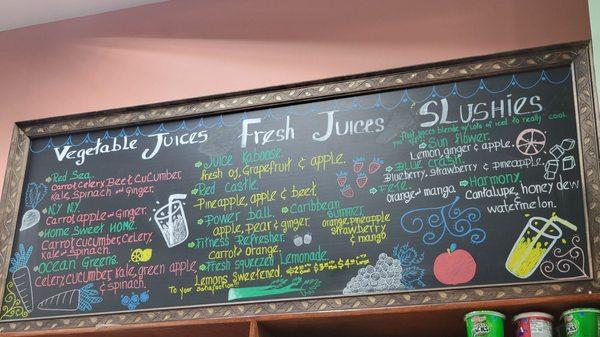 Vegetable Juices
Red Sea.
Carrot, celery, Beet, cucumber
Kale, Spinach and Ginger.
N.Y. N.Y.
Carrot, apple and Ginger.
Home Sweet Home.
Carrot, cucumber, celery,
Kale and Spinach.
Ocean Greens
celery, cucumber, Kale, green apple,
and Spinach.
Fresh Juices
Juice Kabonse
fresh oj, Grapefruit & apple.
Red Castle
Pineapple, apple & beet
Power Ball
apple, pear & ginger.
Fitness Refresher.
Carrot & orange.
Fresh squeezed Lemonade
Lemons Sweetened.
To your Satisfaction
$2 $3 $4
Caribbean
Summer.
orange, pineapple
strawberry
& mango.
Slushies
fruit juices blended w/Lots of iced to really cool
Sun flower.
Lemon, ginger & apple.
Blue Crash.
Blueberry, Strawberry & pineapple
Fete.
orange & mango.
Harmony.
Cantalupe, honey dew
& watermelon.